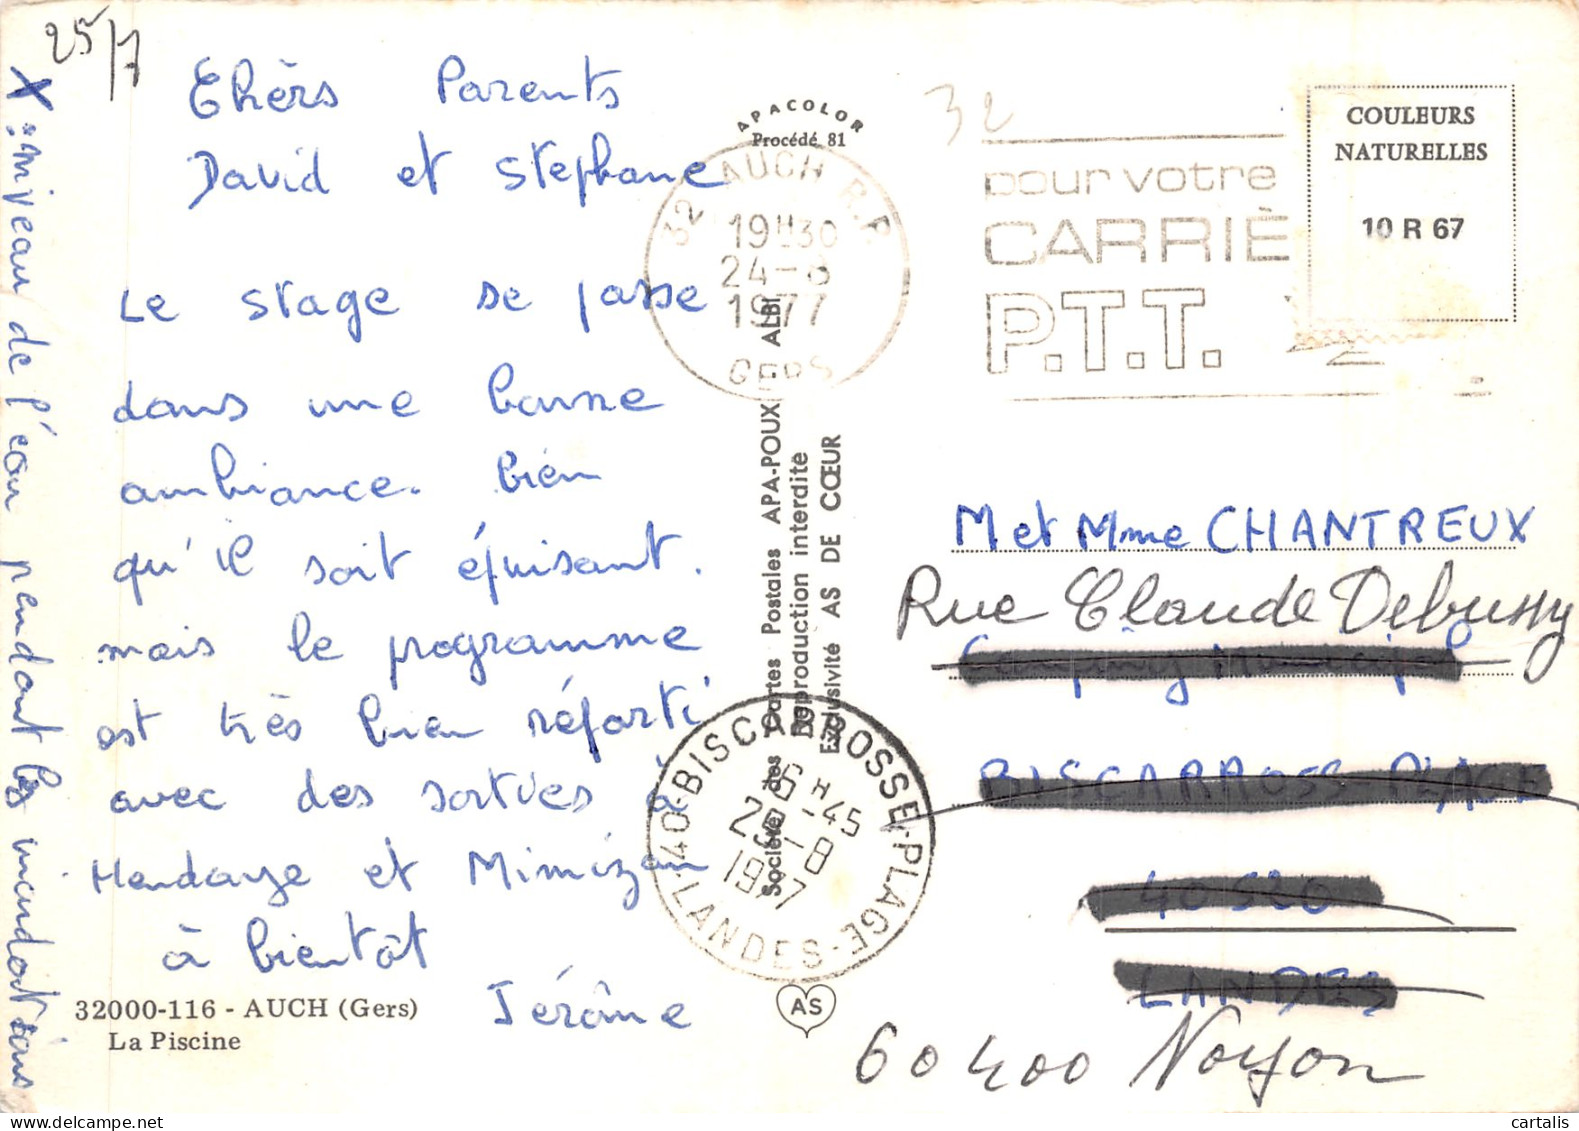 25/7
Chèrs Parents
David et Stephane
Le stage se passe
dans une bonne
ambiance. bien
qu'il soit épuisant.
mais le programme
est très bien réparti
avec des sorties à
Hendaye et Mimizan
à bientôt
Jérôme
X : niveau de l'eau pendant les inondations
32000-116 - AUCH (Gers)
La Piscine
APACOLOR
Procédé 81
32 AUCH R.P.
19H30
24-8
1977
GERS
Société des Cartes Postales APA-POUX ALBI
Reproduction interdite
Exclusivité AS DE CŒUR
40-BISCARROSSE-PLAGE
16H45
25-8
1977
LANDES
AS
32
pour votre
CARRIÈ
P.T.T.
COULEURS
NATURELLES
10 R 67
M et Mme CHANTREUX
Rue Claude Debussy
Camping Municipal
BISCARROSS-PLAGE
40520
LANDES
60400 Noyon
© cartalis